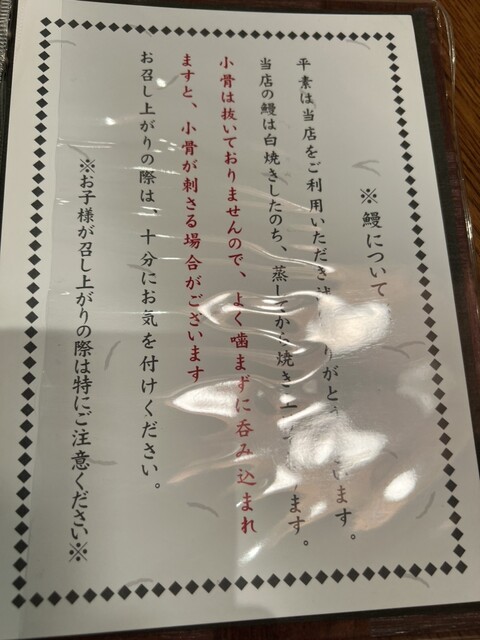 ※鰻について
平素は当店をご利用いただき りがとう います。
当店の鰻は白焼きしたのち、蒸してから焼き上 ます。
小骨は抜いておりませんので、よく噛まずに呑み込まれ
ますと、小骨が刺さる場合がございます
お召し上がりの際は、十分にお気を付けください。
※お子様が召し上がりの際は特にご注意ください※